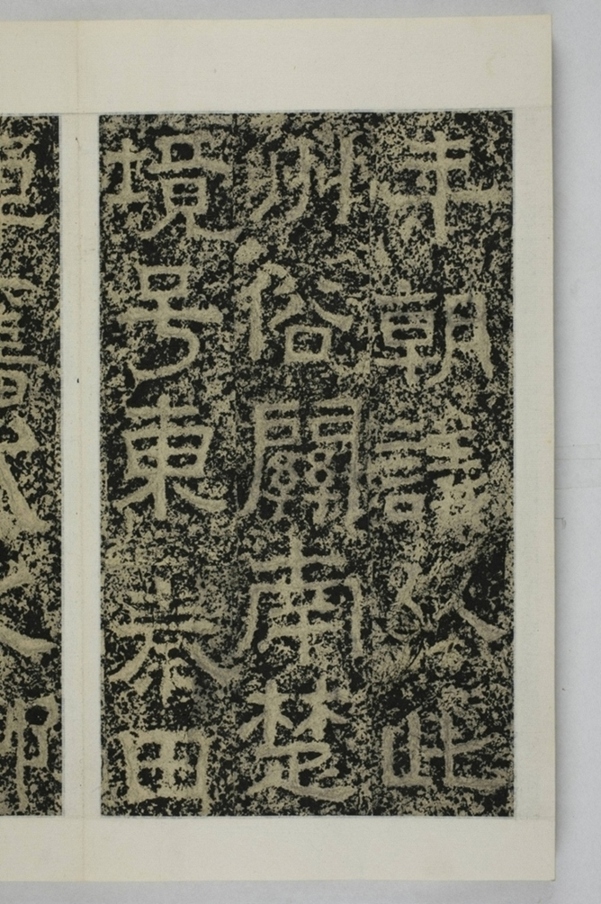 年朝議以此
州俗關南楚
境号東秦田